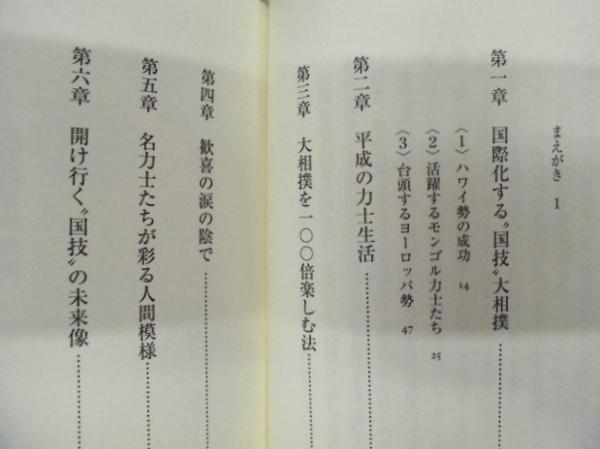 まえがき 1
第一章 国際化する〝国技〟大相撲
〈1〉ハワイ勢の成功 14
〈2〉活躍するモンゴル力士たち 25
〈3〉台頭するヨーロッパ勢 47
第二章 平成の力士生活
第三章 大相撲を一〇〇倍楽しむ法
第四章 歓喜の涙の陰で
第五章 名力士たちが彩る人間模様
第六章 開け行く〝国技〟の未来像